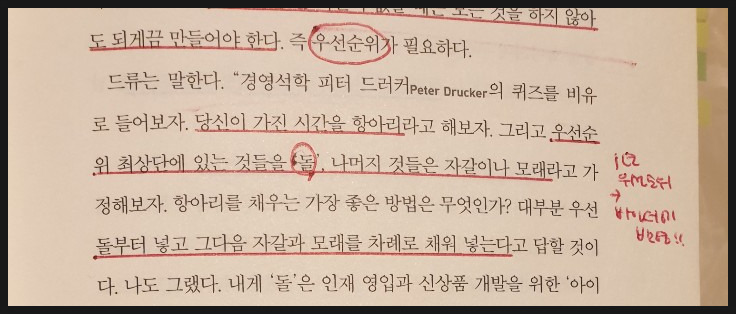 도 되게끔 만들어야 한다. 즉 우선순위가 필요하다.
드류는 말한다. “경영석학 피터 드러커Peter Drucker의 퀴즈를 비유
로 들어보자. 당신이 가진 시간을 항아리라고 해보자. 그리고 우선순
위 최상단에 있는 것들을 ‘돌’, 나머지 것들은 자갈이나 모래라고 가
정해보자. 항아리를 채우는 가장 좋은 방법은 무엇인가? 대부분 우선
돌부터 넣고 그다음 자갈과 모래를 차례로 채워 넣는다고 답할 것이
다. 나도 그랬다. 내게 ‘돌’은 인재 영입과 신상품 개발을 위한 ‘아이
우선순위
→